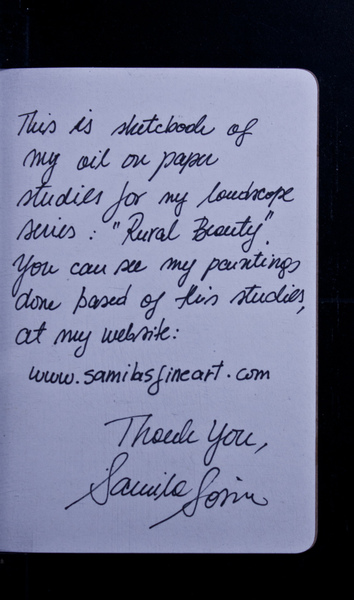 This is sketchbook of
my oil on paper
studies for my landscape
series: "Rural Beauty".
You can see my paintings
done based of this studies,
at my website:
www.samilasfineart.com
Thank You,
Samila